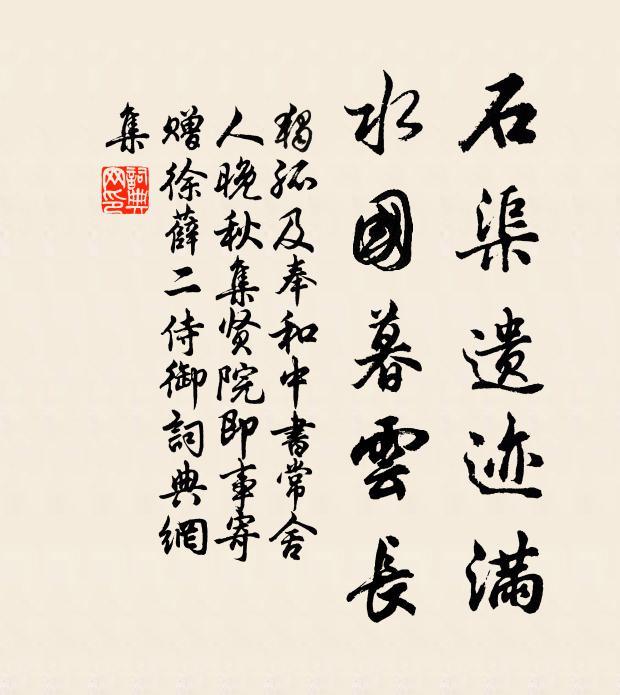 石渠遗迹满
水國暮雲長
獨孤及奉和中書常舍
人晚秋集贤院即事寄
赠徐薛二侍御詞典網
集
詞典
网印